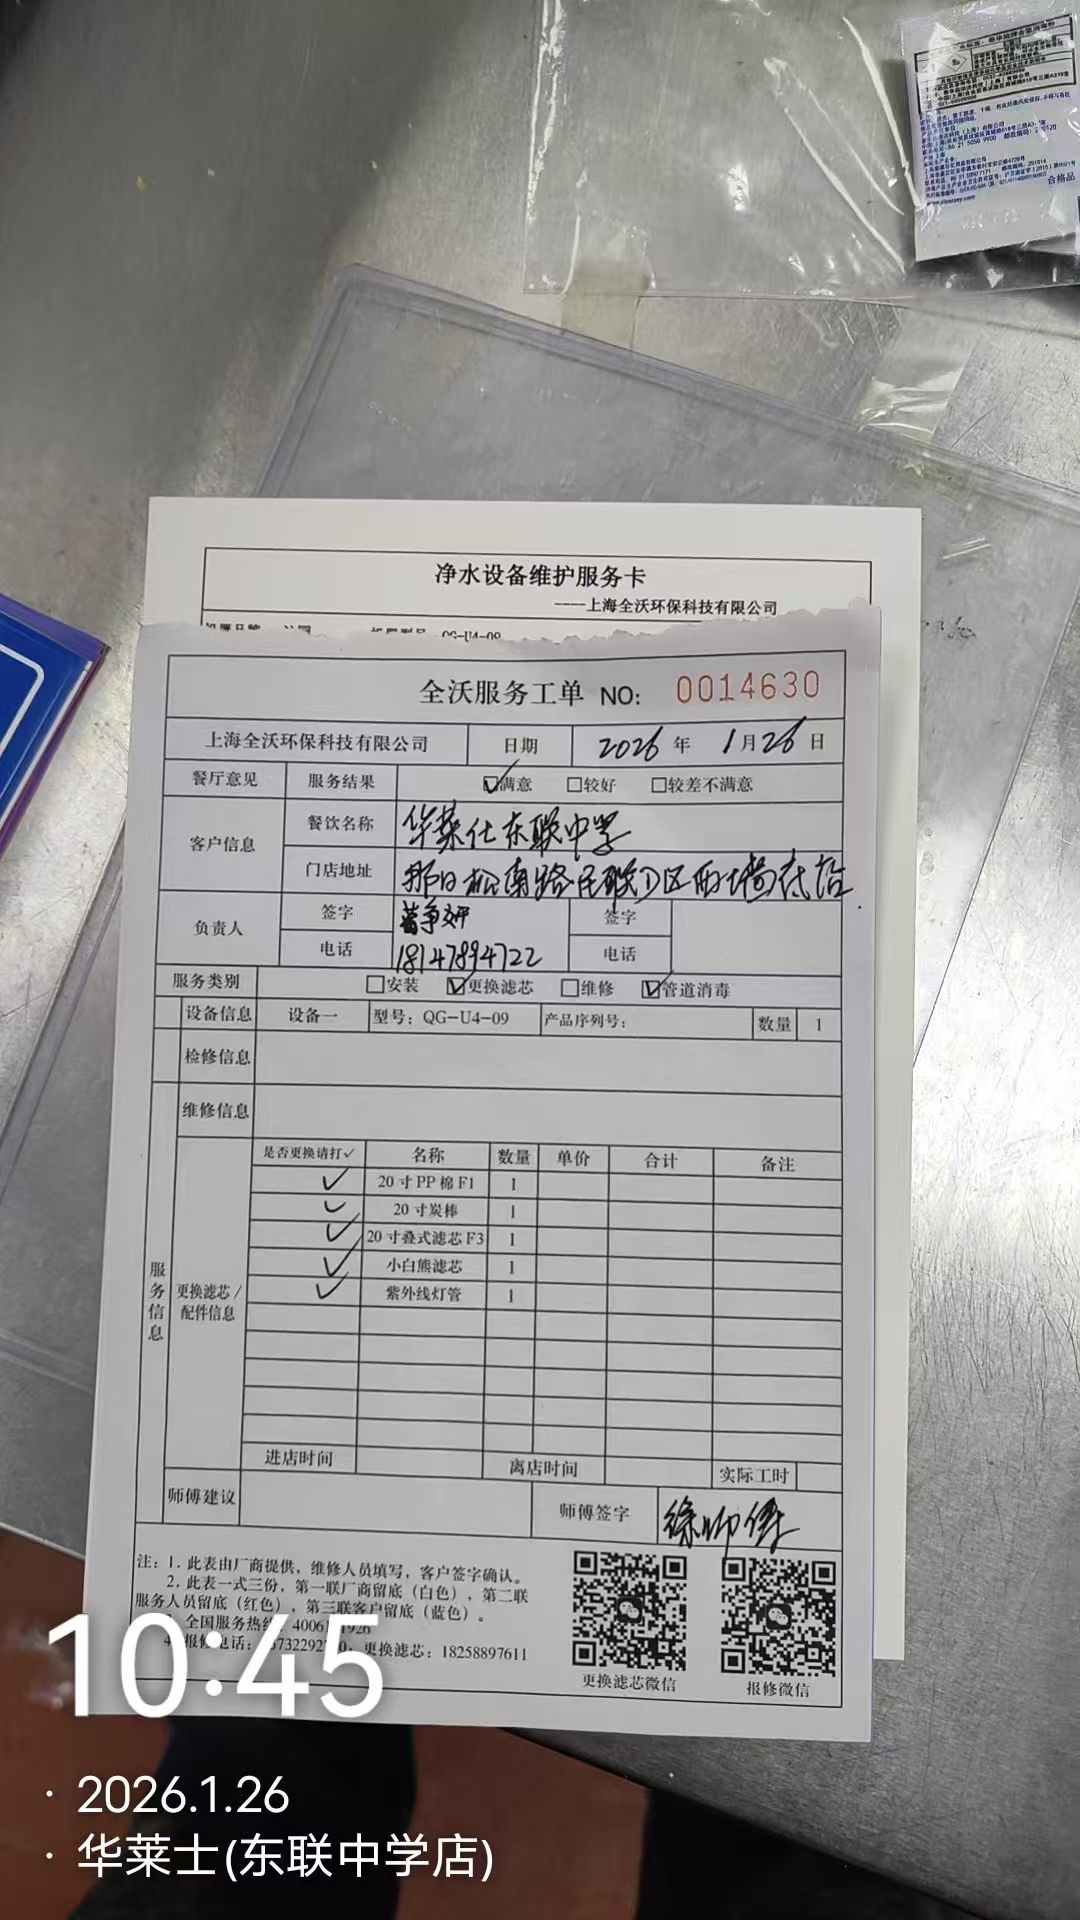 合格品
净水设备维护服务卡
----上海全沃环保科技有限公司
QG-U4-09
全沃服务工单 NO: 0014630
上海全沃环保科技有限公司 日期 2026 年 1 月 26 日
餐厅意见 服务结果 满意 较好 较差不满意
客户信息 餐饮名称 华莱仕东联中学
门店地址
负责人 签字 签字
电话 18147894722 电话
服务类别 安装 更换滤芯 维修 管道消毒
设备信息 设备一 型号：QG-U4-09 产品序列号： 数量 1
检修信息
维修信息
服务信息 更换滤芯/配件信息
是否更换请打✓ 名称 数量 单价 合计 备注
✓ 20寸PP棉F1 1
✓ 20寸炭棒 1
✓ 20寸叠式滤芯F3 1
✓ 小白熊滤芯 1
✓ 紫外线灯管 1
进店时间 离店时间 实际工时
师傅建议 师傅签字 徐师傅
注：1. 此表由厂商提供，维修人员填写，客户签字确认。
2. 此表一式三份，第一联厂商留底（白色），第二联
服务人员留底（红色），第三联客户留底（蓝色）。
全国服务热线
报修电话： 更换滤芯：18258897611
更换滤芯微信 报修微信
10:45
· 2026.1.26
· 华莱士(东联中学店)